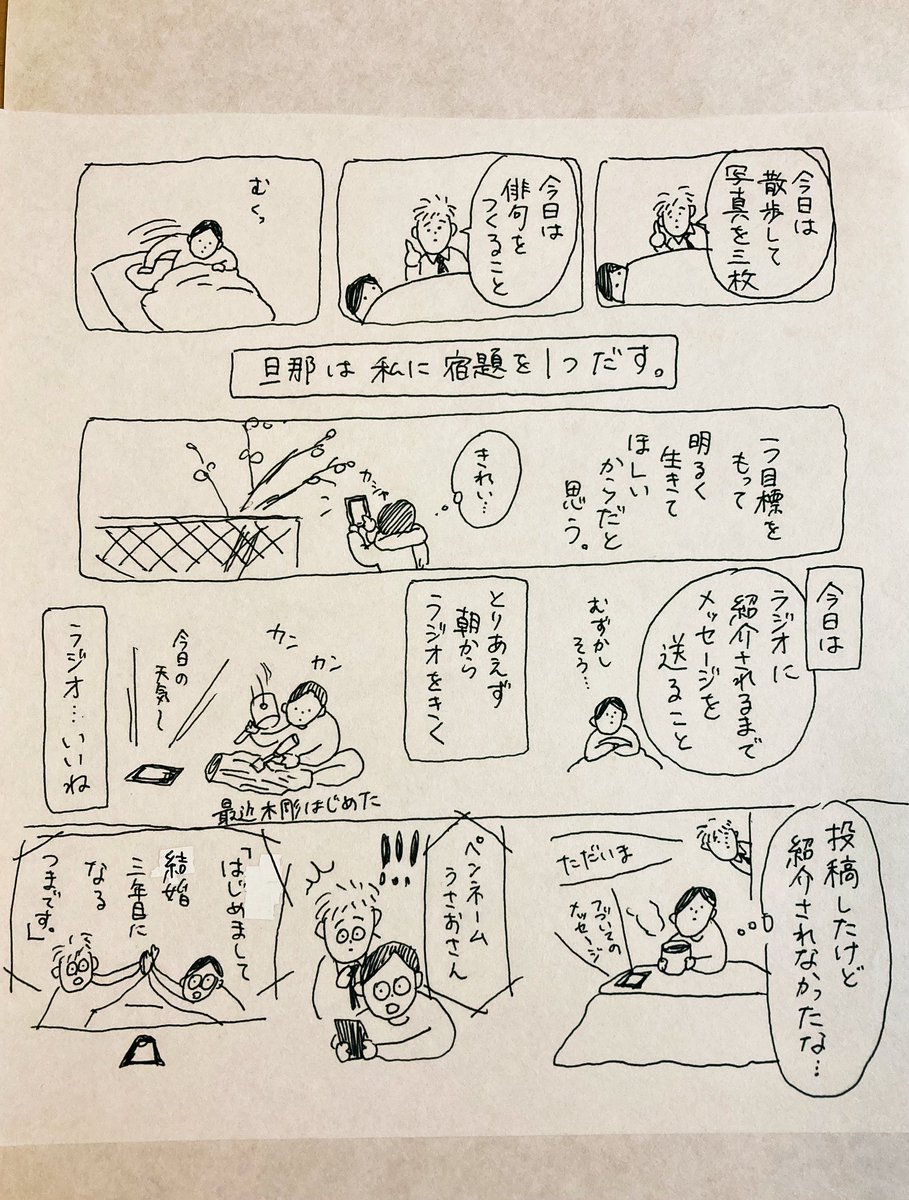 今日は
散歩して
写真を三枚
今日は
俳句を
つくること
むくっ
旦那は私に宿題を1つだす。
一つ目標を
もって
明るく
生きて
ほしい
からだと
思う。
きれい…
カシャ
今日は
ラジオに
紹介されるまで
メッセージを
送ること
むずかし
そう…
とりあえず
朝から
ラジオをきく
カン
カン
今日の
天気〜
最近木彫はじめた
ラジオ…いいね
投稿したけど
紹介されなかったな…
ただいま
つづいての
メッセージ
ペンネーム
うさおさん
!!!
「はじめまして
結婚
三年目に
なる
つまです。」